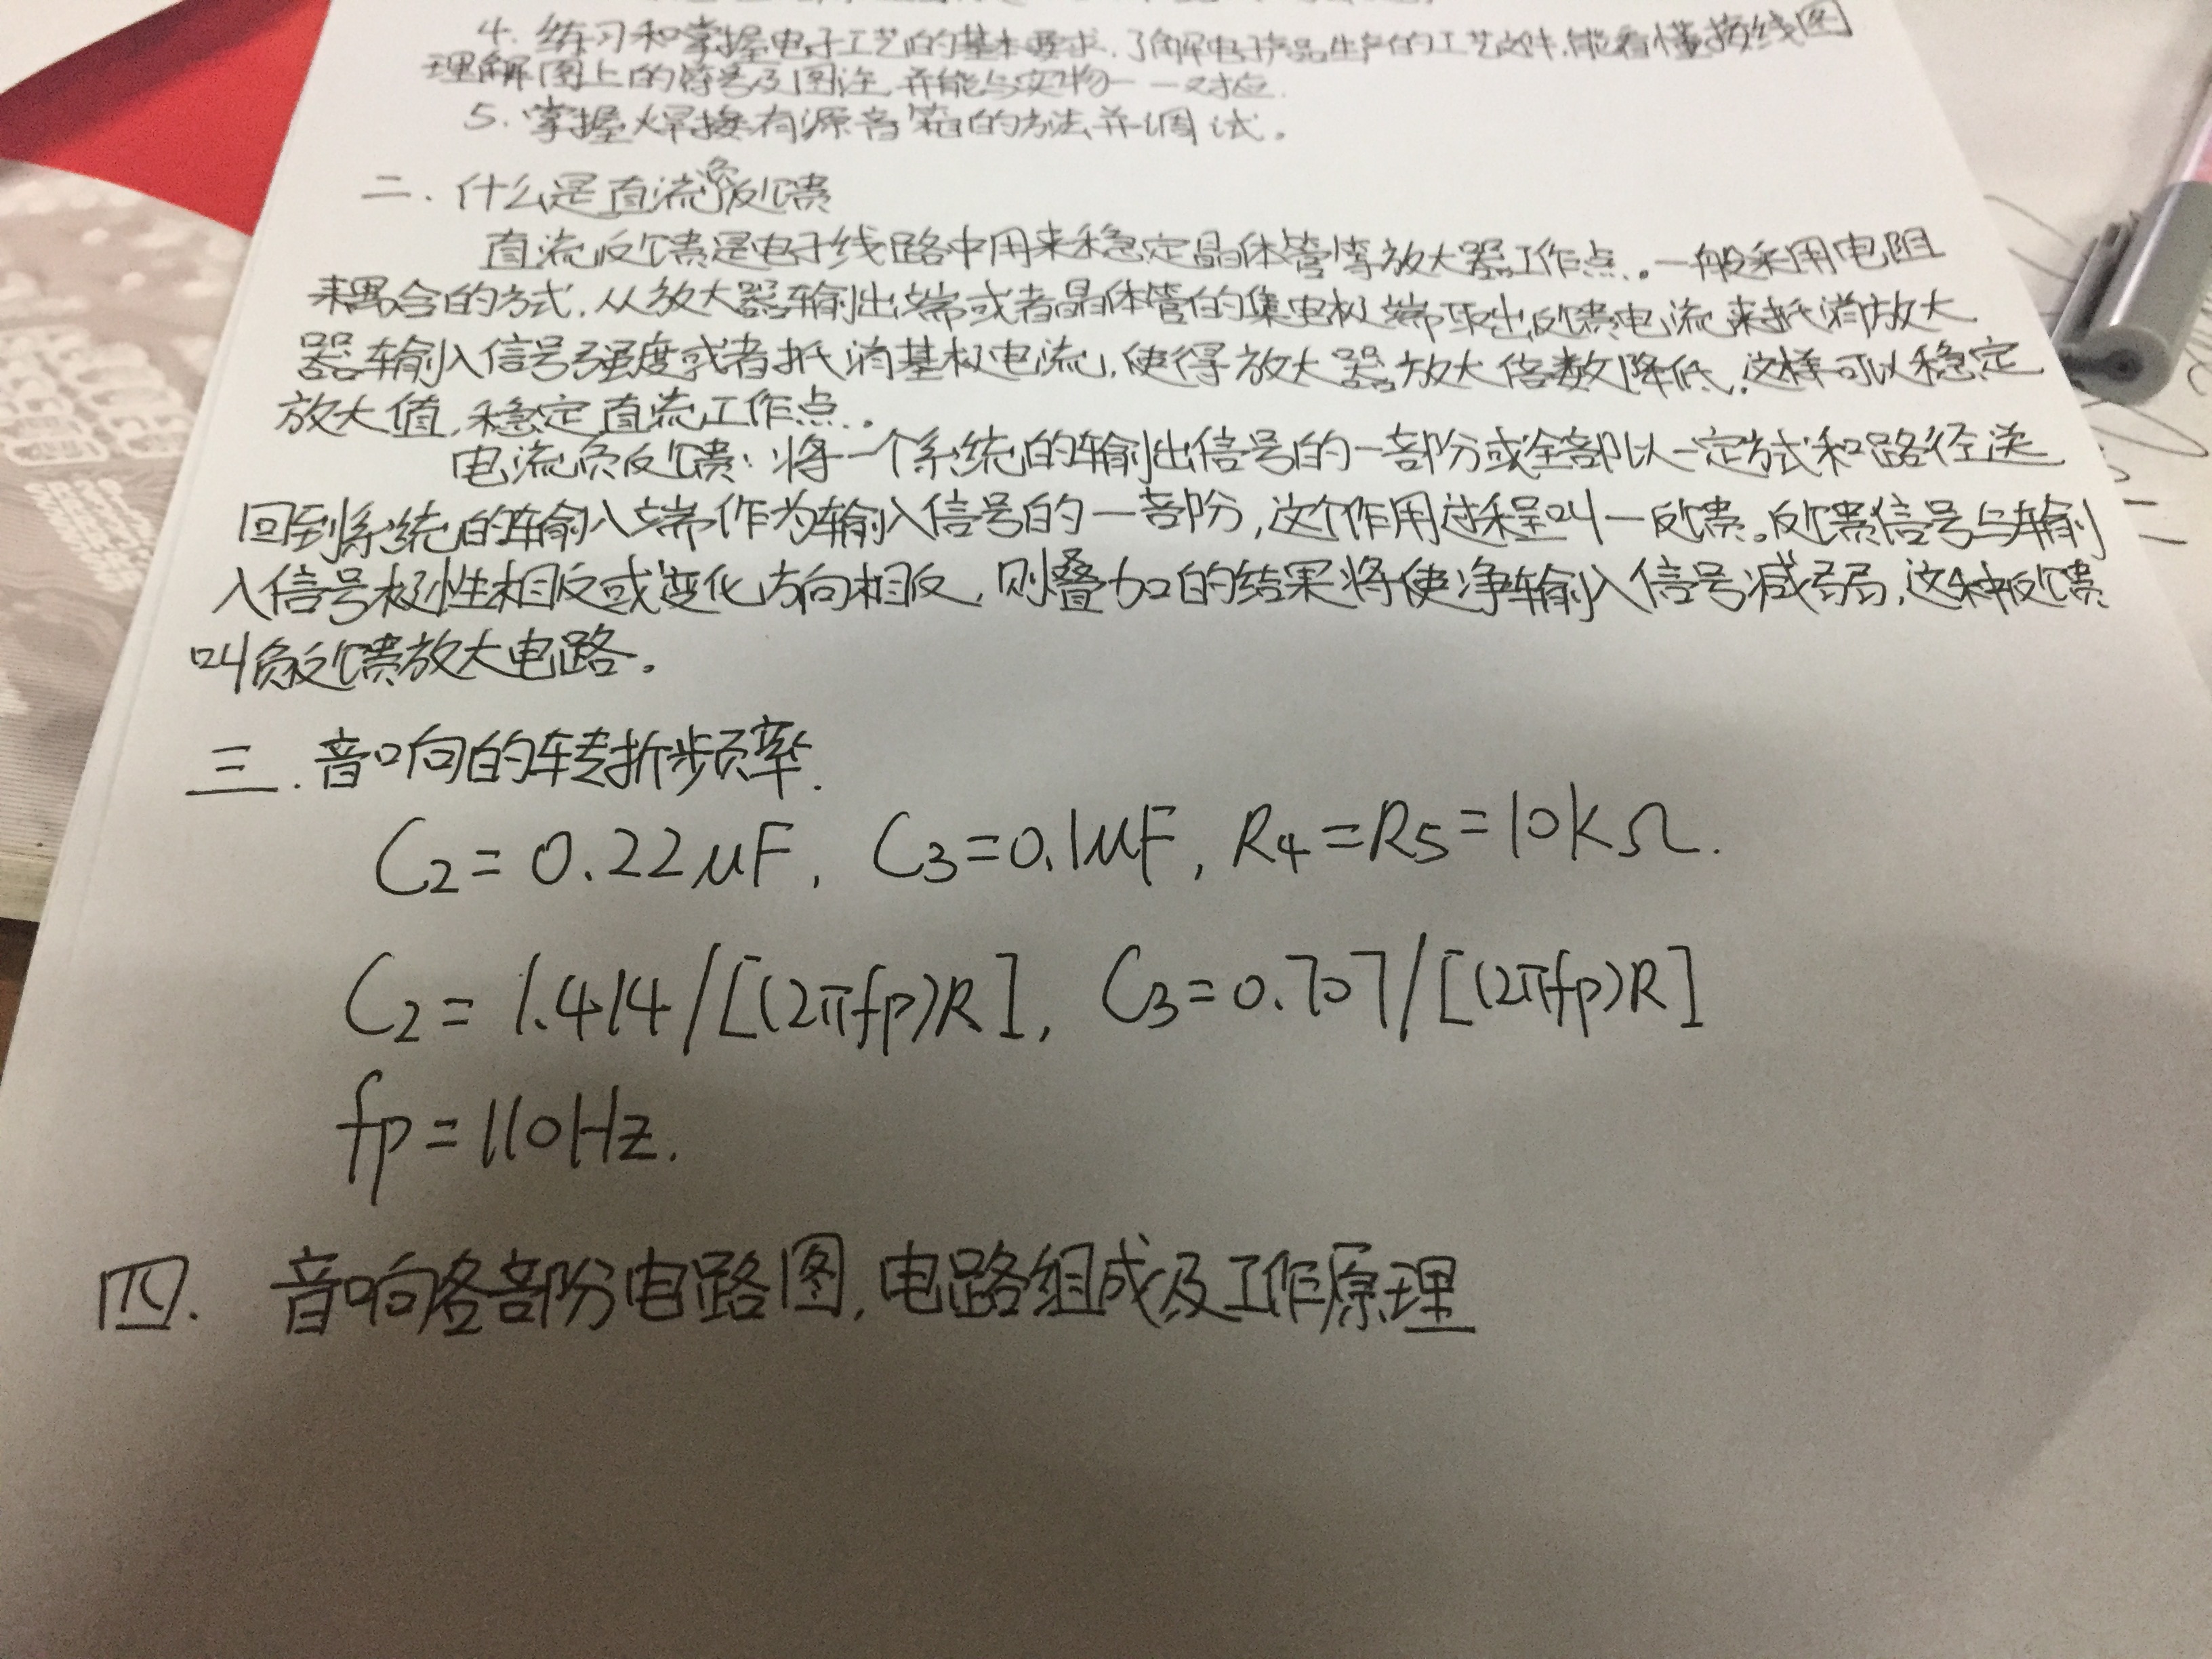 4. 练习和掌握电子工艺的基本要求.了解电子产品生产的工艺文件,能看懂接线图
理解图上的符号及图注,并能与实物一一对应.
5.掌握焊接有源音箱的方法并调试。
二.什么是直流负反馈
直流反馈是电子线路中用来稳定晶体管等放大器工作点.。一般采用电阻
来耦合的方式,从放大器输出端或者晶体管的集电极端取出反馈电流来抵消放大
器输入信号强度或者抵消基极电流,使得放大器放大倍数降低,这样可以稳定
放大值,稳定直流工作点.。
电流负反馈:将一个系统的输出信号的一部份或全部以一定方式和路径送
回到系统的输入端作为输入信号的一部份,这个作用过程叫一反馈。反馈信号与输
入信号极性相反或变化方向相反,则叠加的结果将使净输入信号减弱,这种反馈
叫负反馈放大电路。
三.音响的转折频率.
C2=0.22μF, C3=0.1μF, R4=R5=10kΩ.
C2=1.414/[(2πfp)R], C3=0.707/[(2πfp)R]
fp=110Hz.
四. 音响各部份电路图,电路组成及工作原理